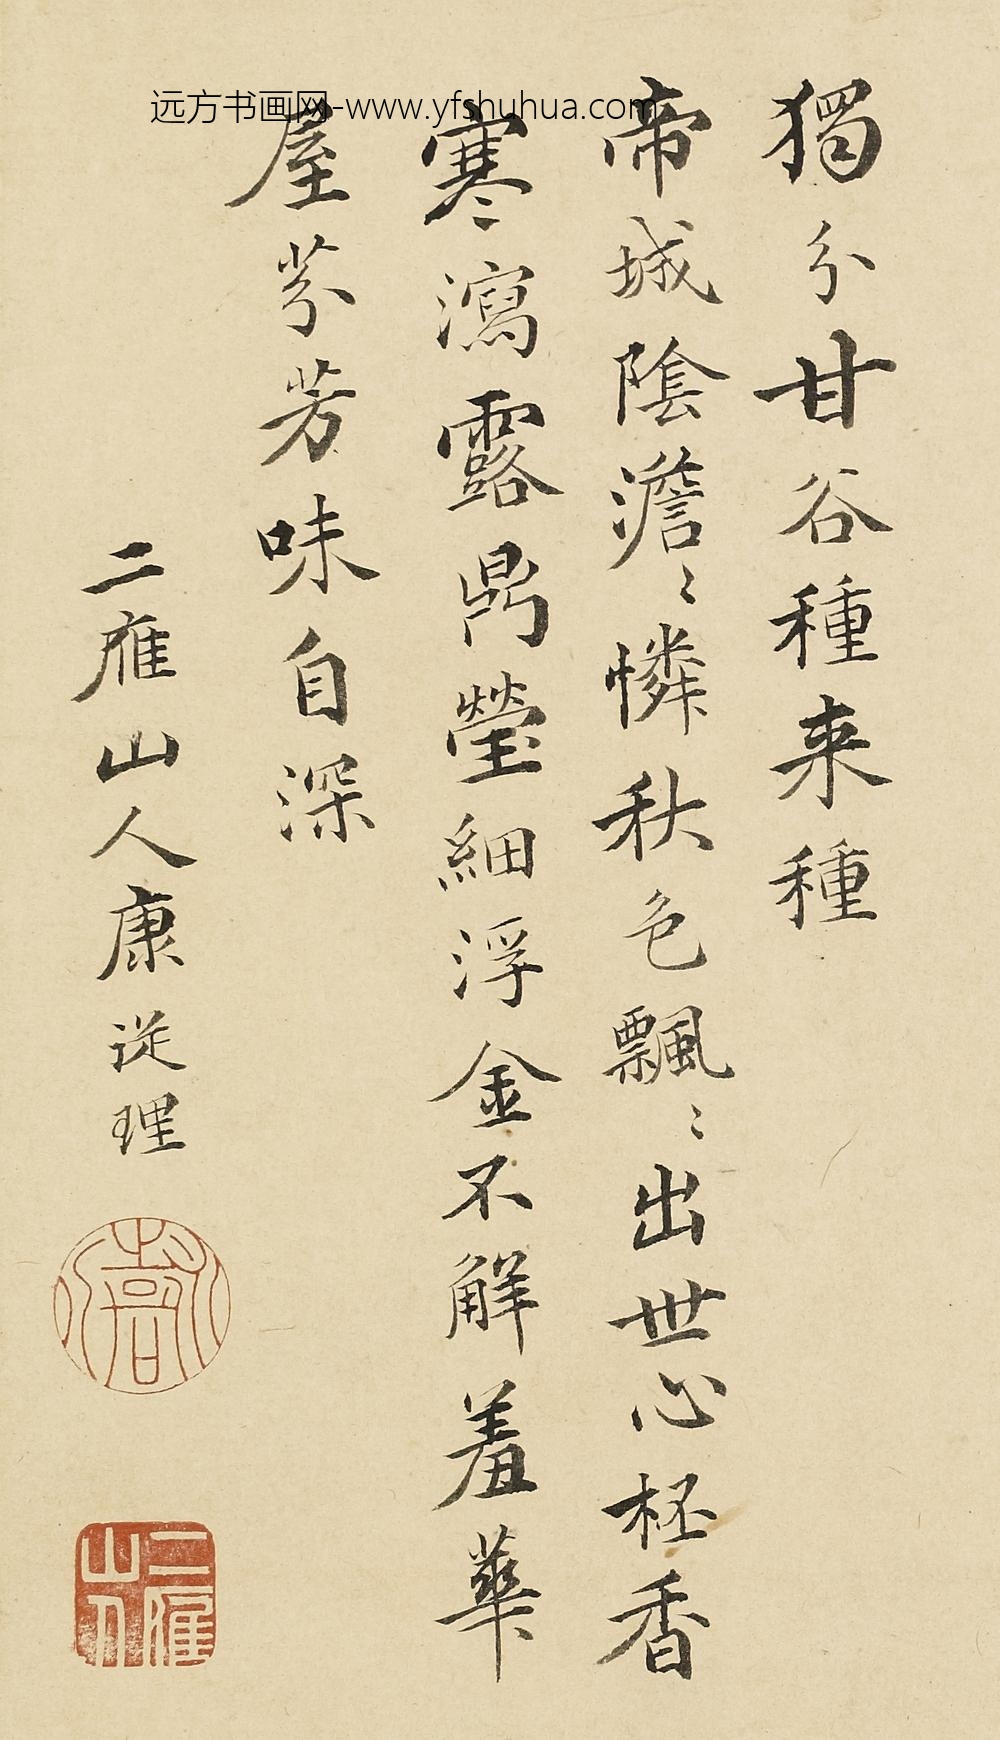 远方书画网-www.yfshuhua.com
獨分甘谷種来種
帝城陰澹〻憐秋色飄〻出世心柸香
寒瀉露鼎瑩細浮金不解羞華
屋芬芳味自深
二雁山人康從理
二雁山人